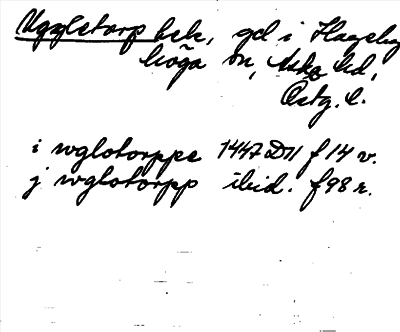 Uggletorp bek, gd i Hageby-
höga sn, Aska hd,
Östg. l.
i wglotorppe 1447 D11 f 14 v.
j wglotorpp ibid. f 98 r.